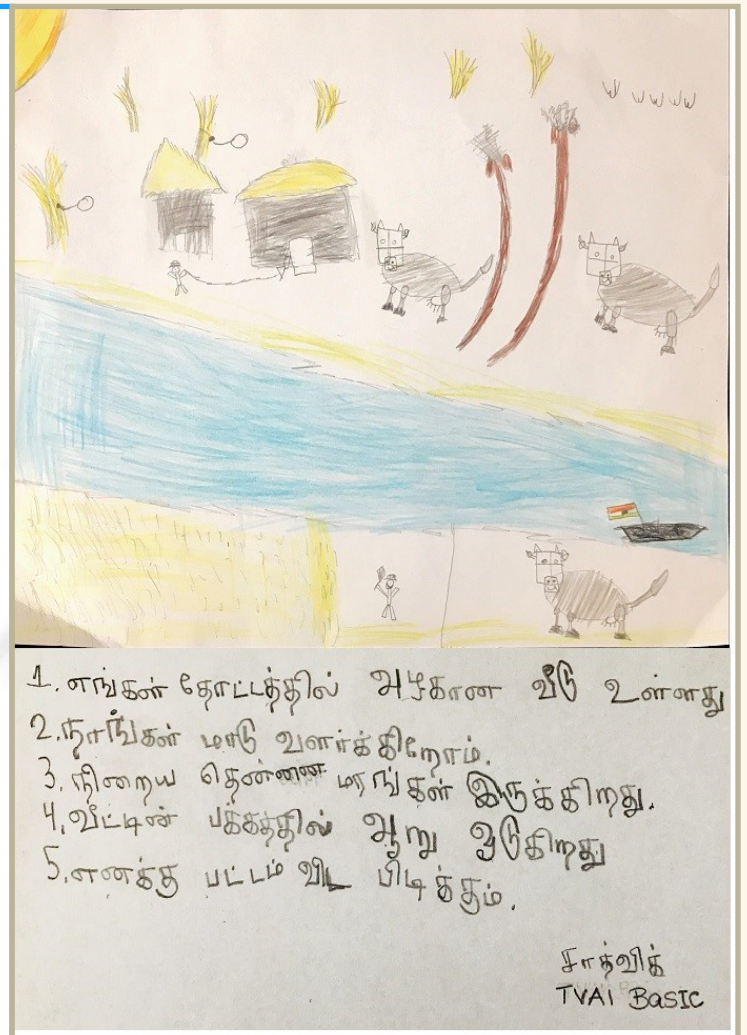 1. எங்கள் தோட்டத்தில் அழகான வீடு உள்ளது
2. நாங்கள் மாடு வளர்க்கிறோம்.
3. நிறைய தென்னை மரங்கள் இருக்கிறது.
4. வீட்டின் பக்கத்தில் ஆறு ஓடுகிறது
5. எனக்கு பட்டம் விட பிடிக்கும்.
சாத்விக்
TVAI BASIC